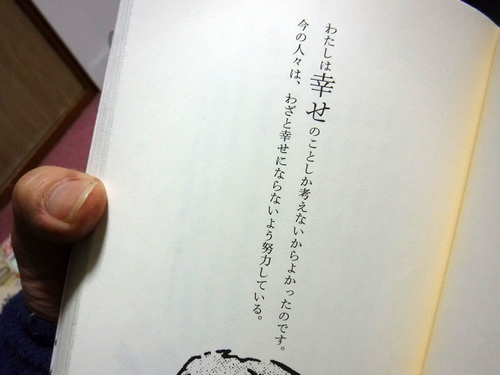 わたしは幸せのことしか考えないからよかったのです。
今の人々は、わざと幸せにならないよう努力している。